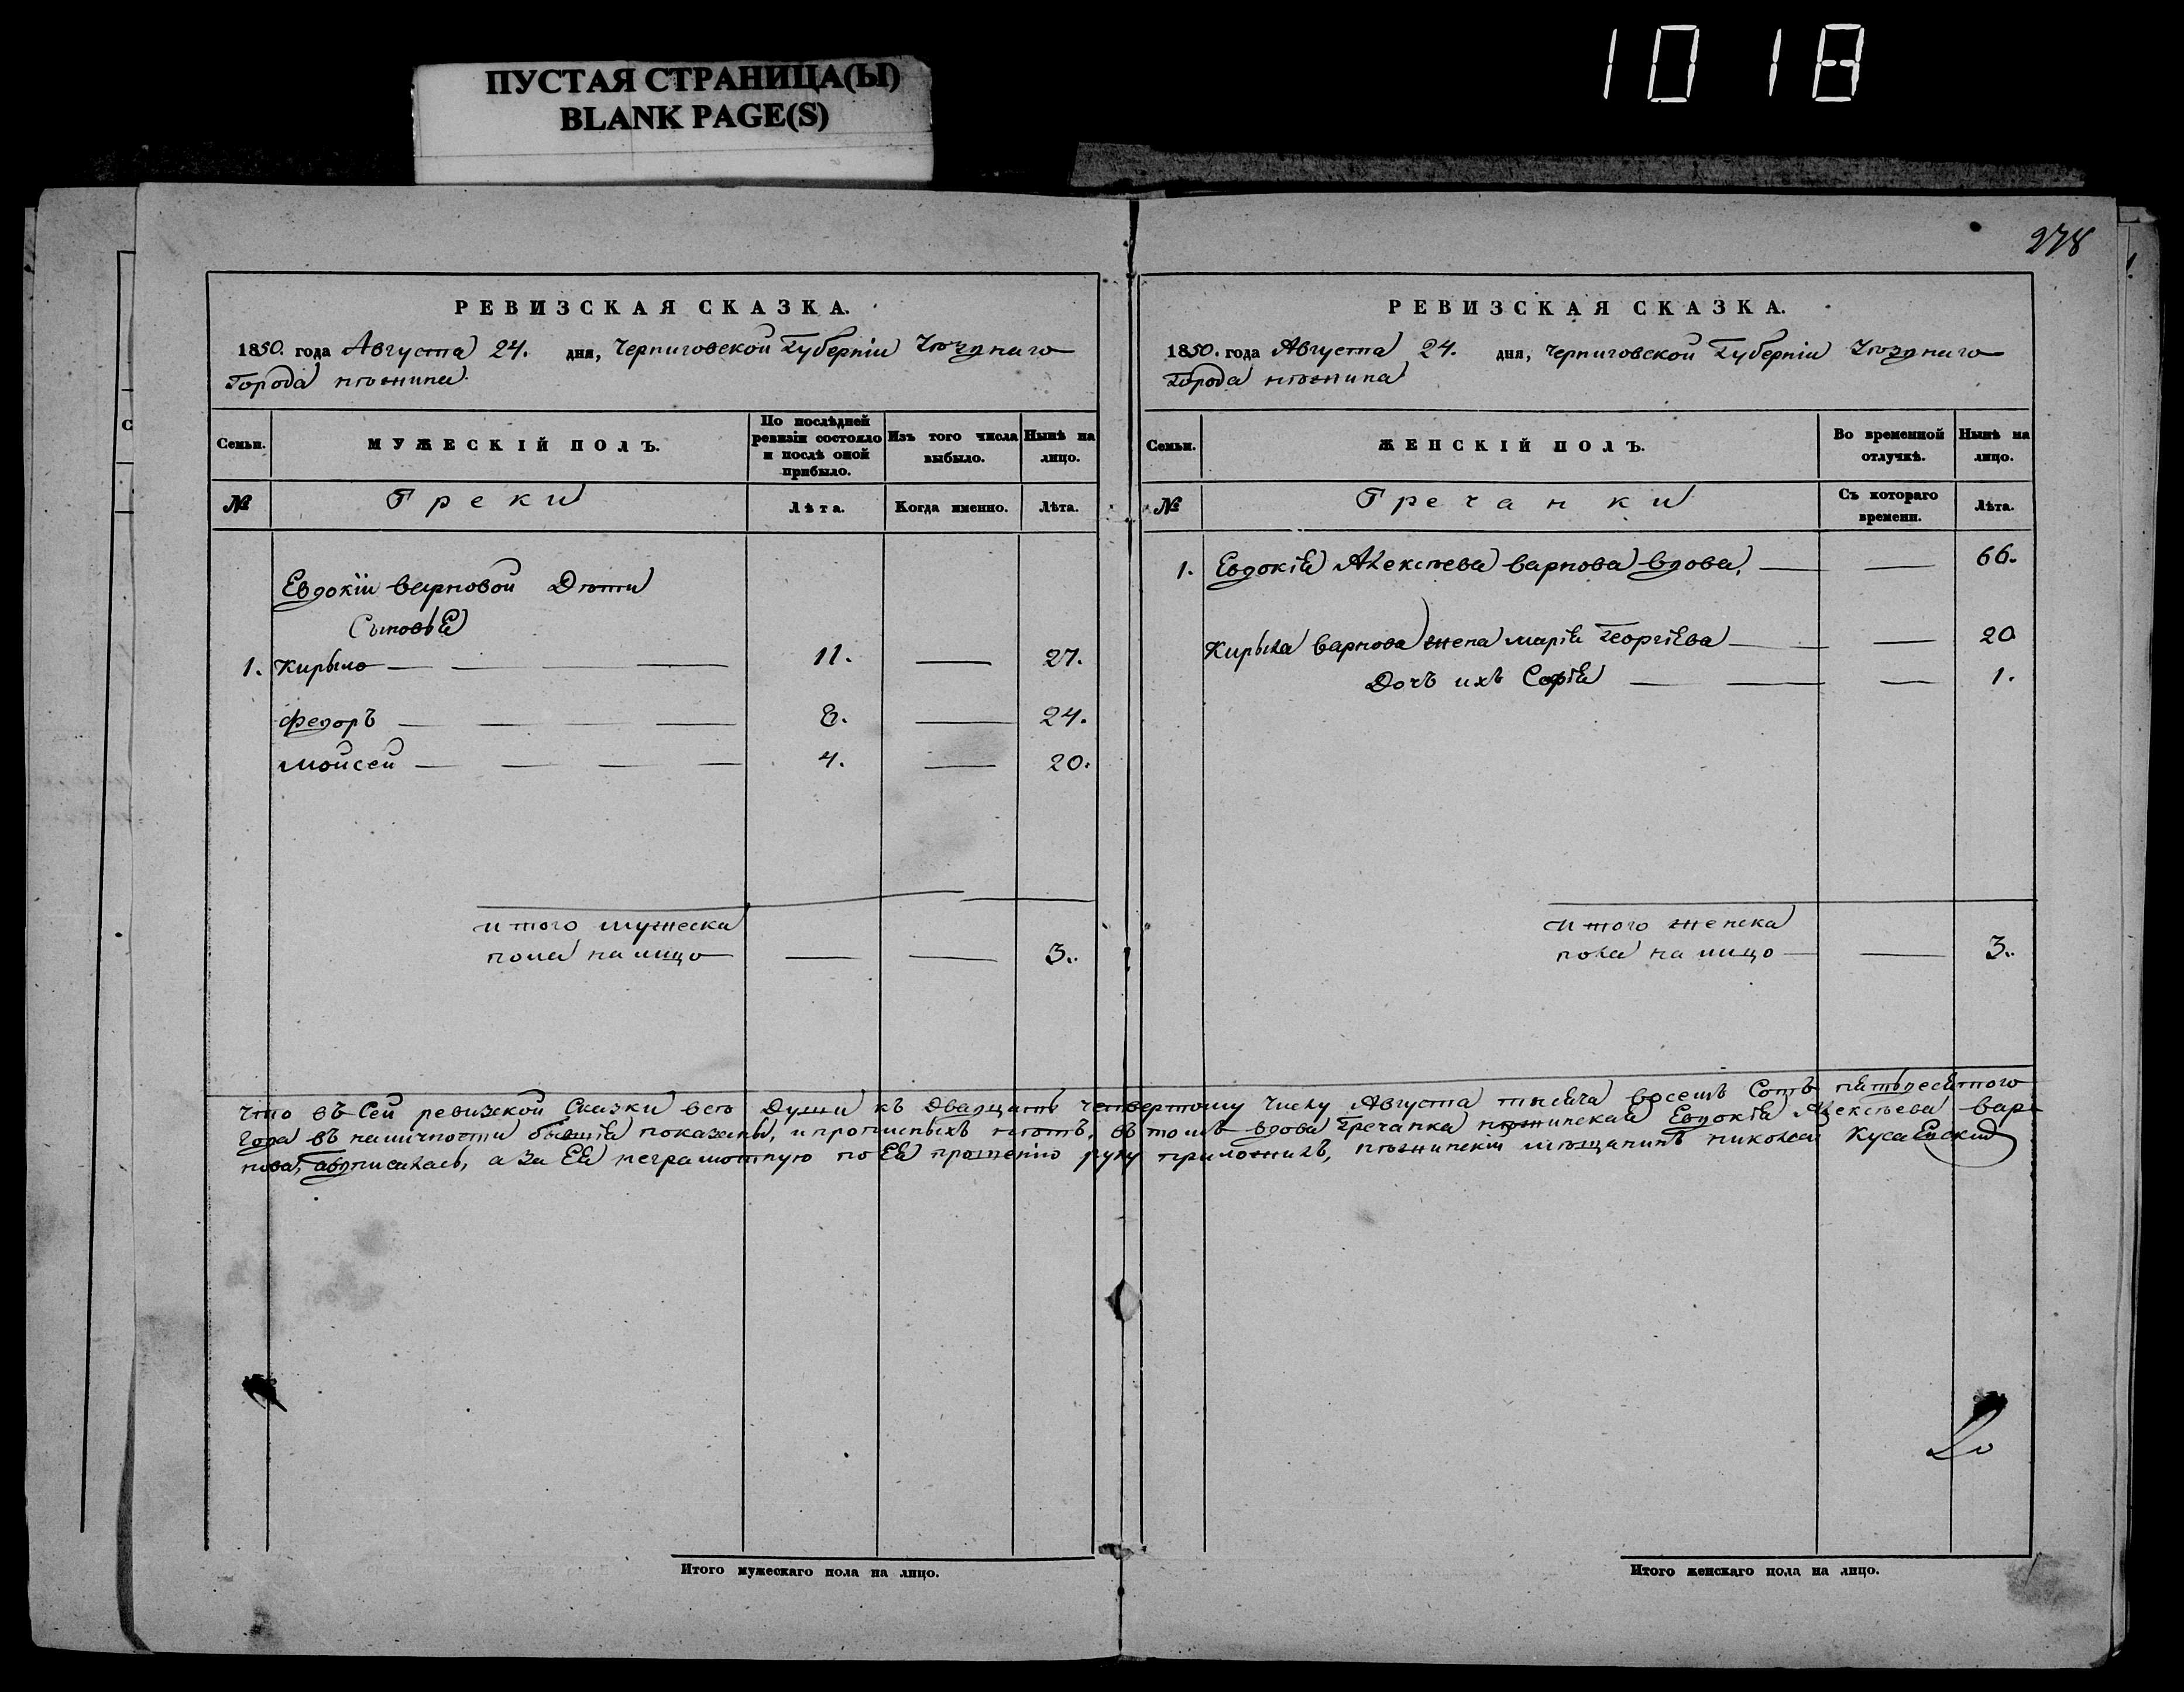 ПУСТАЯ СТРАНИЦА(Ы)
BLANK PAGE(S)
1018
278
РЕВИЗСКАЯ СКАЗКА.
1850. года Августа 24. дня, Черниговской Губерніи Уѣзднаго
Города нѣжина.
Семьи.
МУЖЕСКІЙ ПОЛЪ.
По послѣдней ревизіи состояло и послѣ оной прибыло.
Изъ того числа выбыло.
Нынѣ на лицо.
№
Греки
Лѣта.
Когда именно.
Лѣта.
Евдокіи варновой Дѣти
Сыновья
1. Кирыло — 11. — 27.
Федоръ — 8. — 24.
Мойсей — 4. — 20.
итого мужеска
пола на лицо — — 3.
РЕВИЗСКАЯ СКАЗКА.
1850. года Августа 24. дня, Черниговской Губерніи Уѣзднаго
Города нѣжина
Семьи.
ЖЕНСКІЙ ПОЛЪ.
Во временной отлучкѣ.
Нынѣ на лицо.
№
Гречанки
Съ котораго времени.
Лѣта.
1. Евдокія Алексѣева варнова вдова, — — 66.
Кирыла варнова жена марія Георгіева — — 20
Дочь ихъ Софія — — 1.
итого женска
пола на лицо — — 3.
Что въ Сей ревизской Сказки всѣ Души къ Двадцать четвертому Числу Августа тысяча восемъ Сотъ пятьдесятого
Года въ наличности бывшія показаны, и прописныхъ нѣтъ, въ томъ вдова Гречанка нѣжинская Евдокія Алексѣева вар-
нова, а за Ея неграмотную по Ея прошенію руку приложилъ, нѣжинскій мѣщанинъ николай
Итого мужескаго пола на лицо.
Итого женскаго пола на лицо.